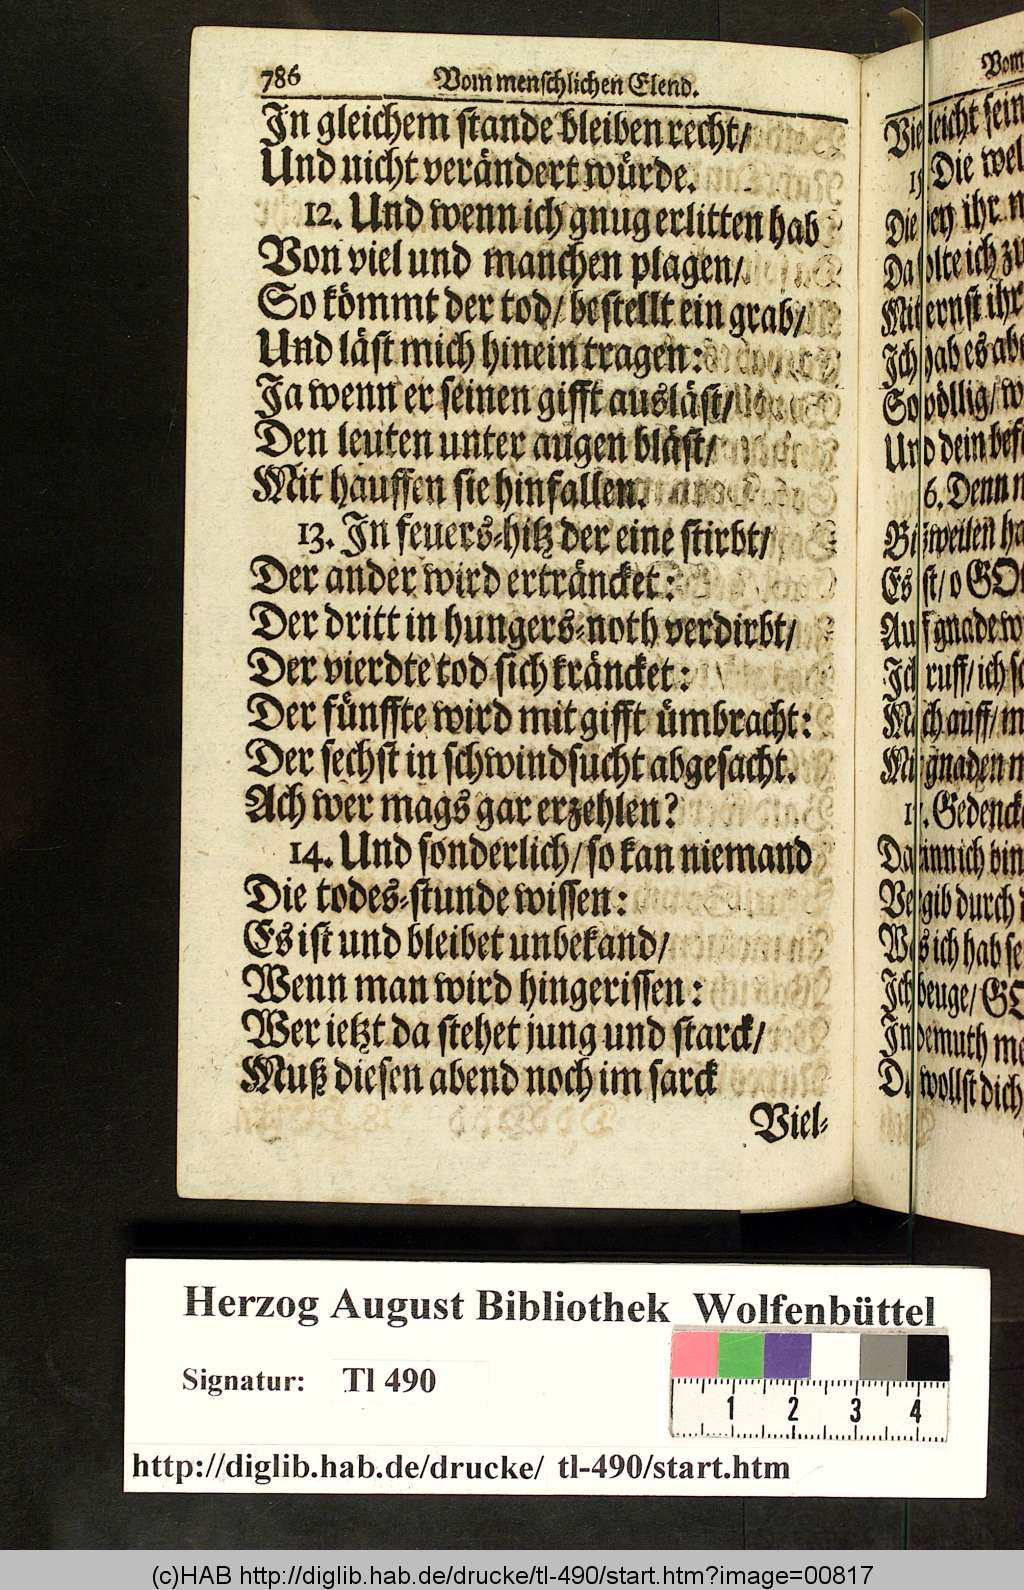 786 Vom menschlichen Elend.
In gleichem stande bleiben recht/
Und nicht verändert würde.
12. Und wenn ich gnug erlitten hab
Von viel und manchen plagen/
So kömmt der tod/ bestellt ein grab/
Und läst mich hinein tragen:
Ja wenn er seinen gifft ausläst/
Den leuten unter augen bläst/
Mit hauffen sie hinfallen.
13. In feuers-hitz der eine stirbt/
Der ander wird erträncket:
Der dritt in hungers-noth verdirbt/
Der vierdte tod sich kräncket:
Der fünffte wird mit gifft ümbracht:
Der sechst in schwindsucht abgesacht.
Ach wer mags gar erzehlen?
14. Und sonderlich/ so kan niemand
Die todes-stunde wissen:
Es ist und bleibet unbekand/
Wenn man wird hingerissen:
Wer ietzt da stehet jung und starck/
Muß diesen abend noch im sarck
Viel-
Vom
Die
Die ihr
ich
ernst ihr
Ich hab es
So völlig/
Und dein
6. Denn
Bißweilen
Es ist/ o
Auf gnade
Ich ruff/ ich
Mach auff/
Mit gnaden
Gedenck
Darinn ich bin
Vergib durch
Was ich hab
Ich beuge/
In demuth
Du wollst dich
Herzog August Bibliothek Wolfenbüttel
Signatur: Tl 490
1 2 3 4
http://diglib.hab.de/drucke/ tl-490/start.htm
(c)HAB http://diglib.hab.de/drucke/tl-490/start.htm?image=00817